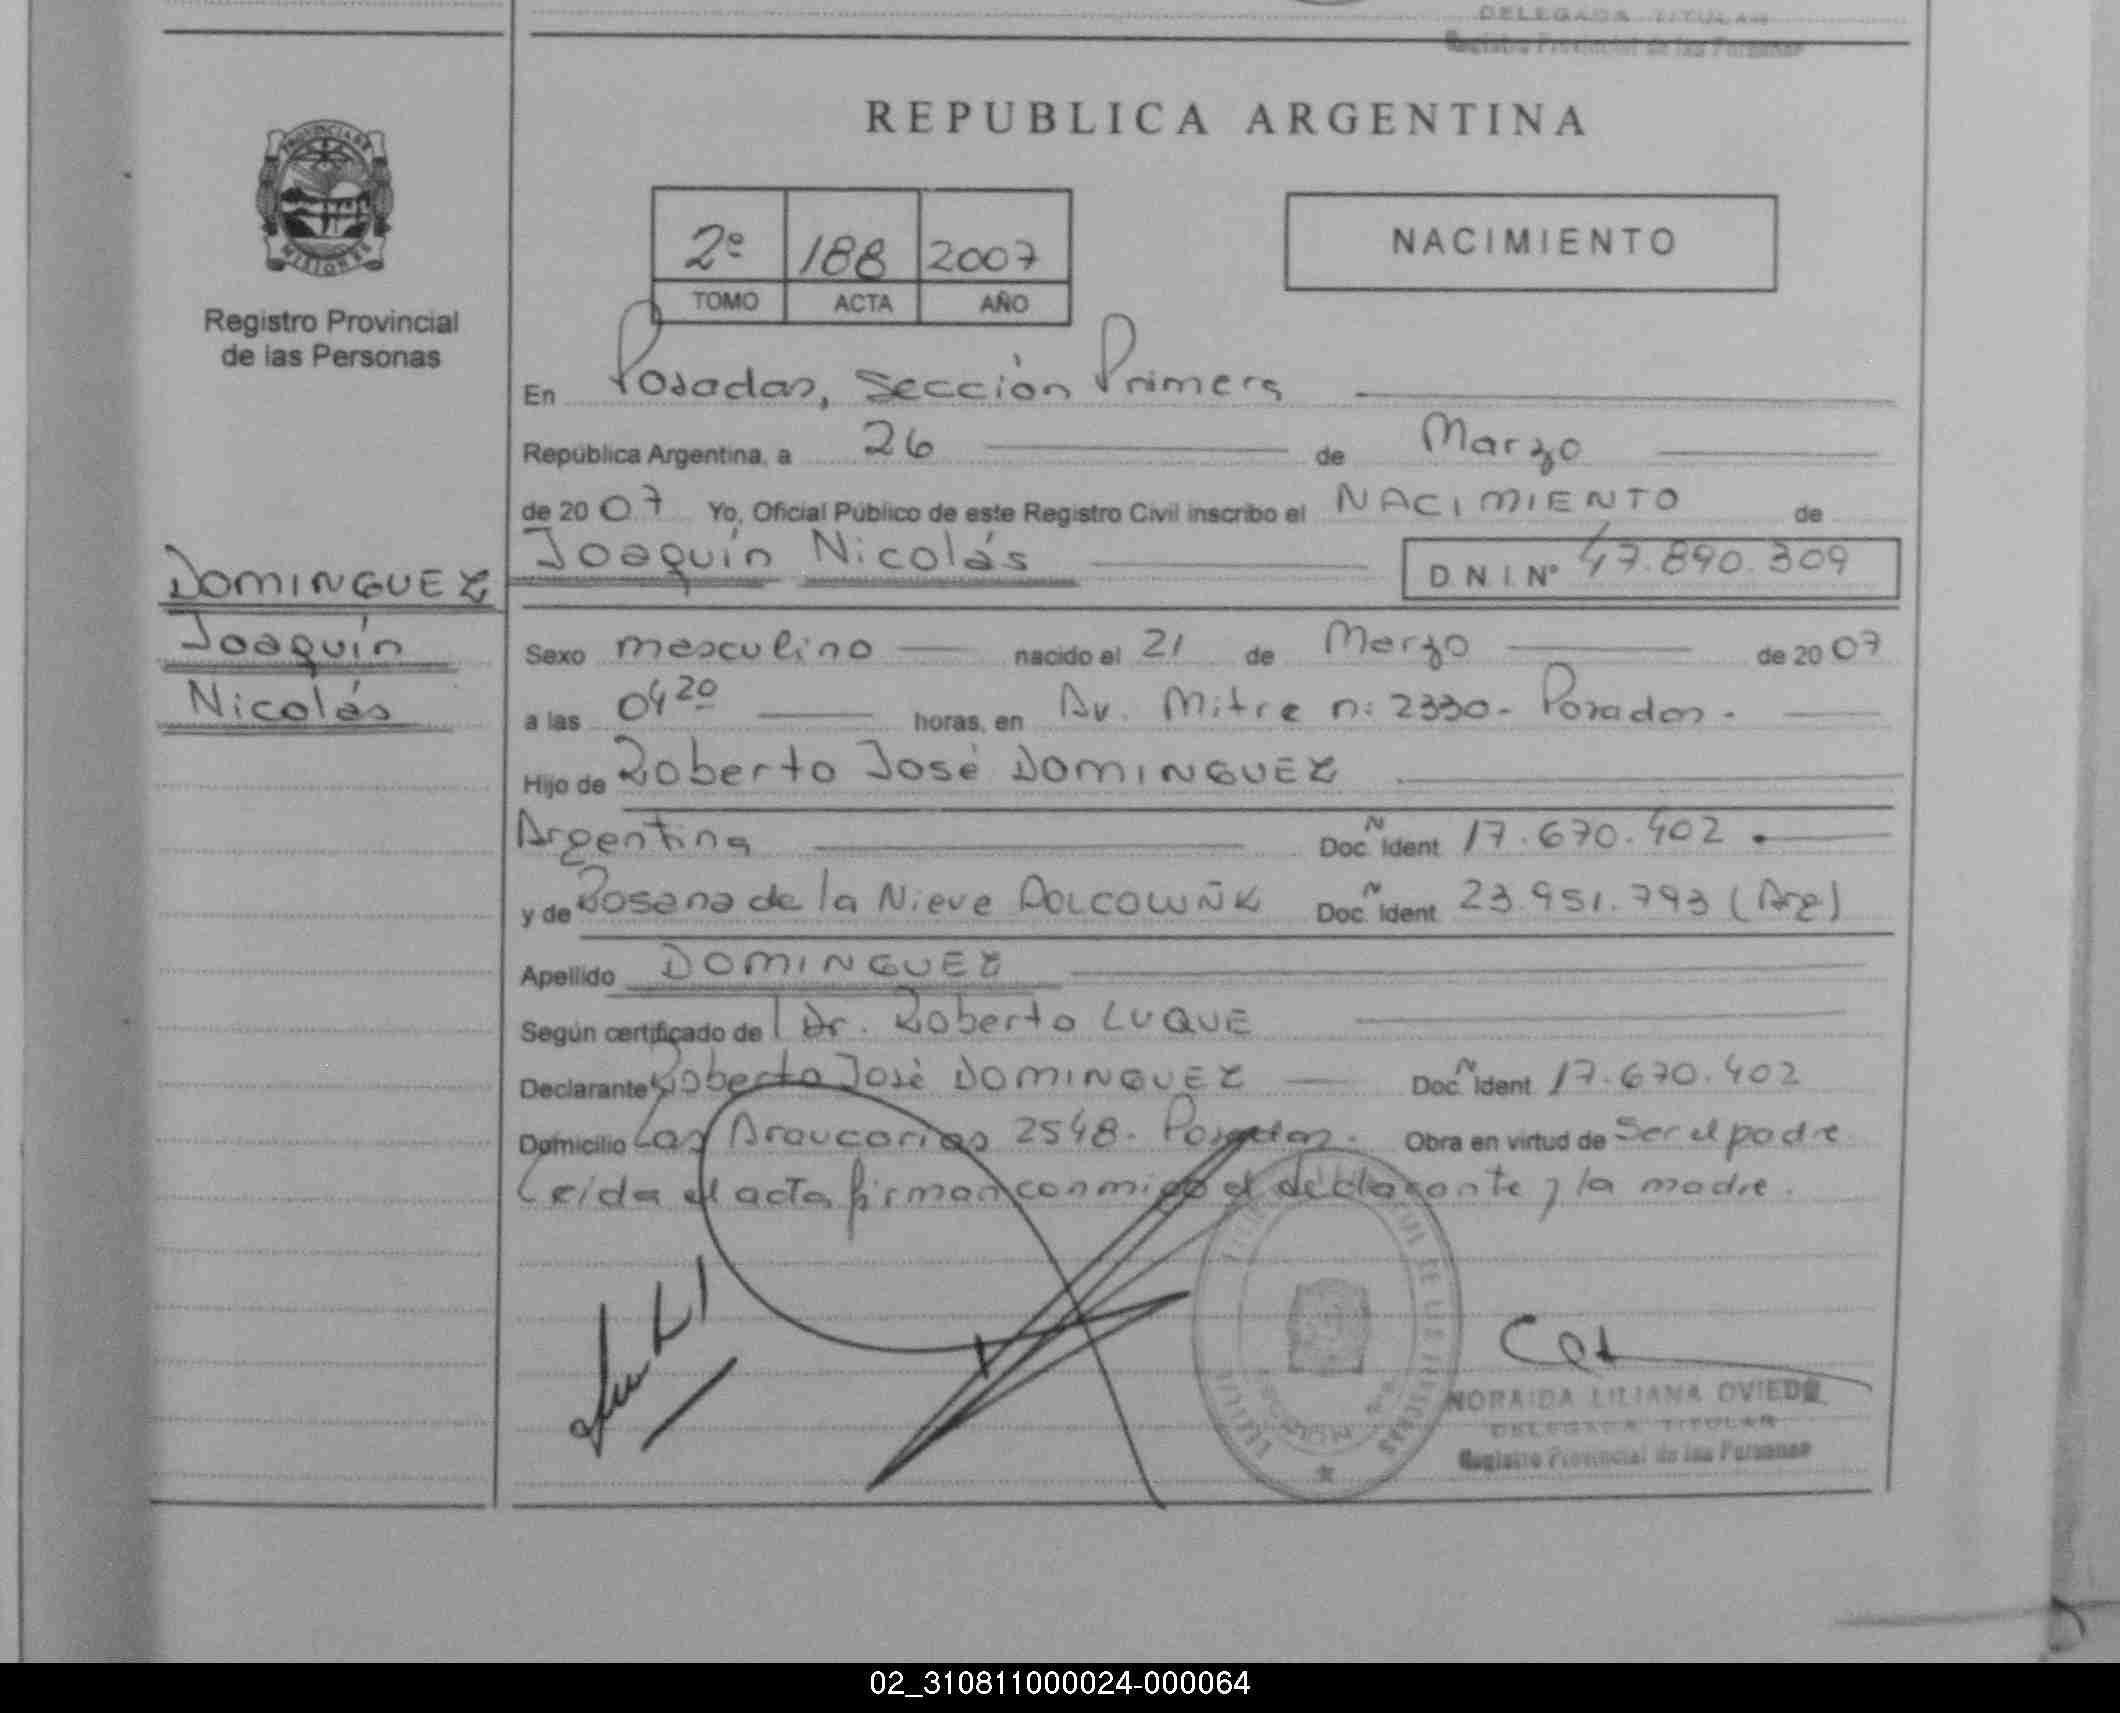 DELEGADA TITULAR
Registro Provincial de las Personas
REPUBLICA ARGENTINA
PROVINCIA DE
MISIONES
Registro Provincial
de las Personas
2º 188 2007
TOMO ACTA AÑO
NACIMIENTO
En Posadas, Sección Primera
República Argentina, a 26 de Marzo
de 2007 Yo, Oficial Público de este Registro Civil inscribo el NACIMIENTO de
Joaquín Nicolás D N I. Nº 47.890.309
DOMINGUEZ
Joaquín
Nicolás
Sexo masculino nacido el 21 de Marzo de 2007
a las 04 20 horas, en Av. Mitre n: 2330 - Posadas.
Hijo de Roberto José DOMINGUEZ
Argentina Doc. Ident 17.670.402
y de Rosana de la Nieve Doc. Ident 23.951.793 (Arg)
Apellido DOMINGUEZ
Según certificado de Dr. Roberto LUQUE
Declarante Roberto José DOMINGUEZ Doc. Ident 17.670.402
Domicilio Las Araucarias 2548. Posadas. Obra en virtud de Ser el padre
Leída el acta firman conmigo el declarante y la madre.
NORAIDA LILIANA OVIEDO
DELEGADA TITULAR
Registro Provincial de las Personas
02_310811000024-000064